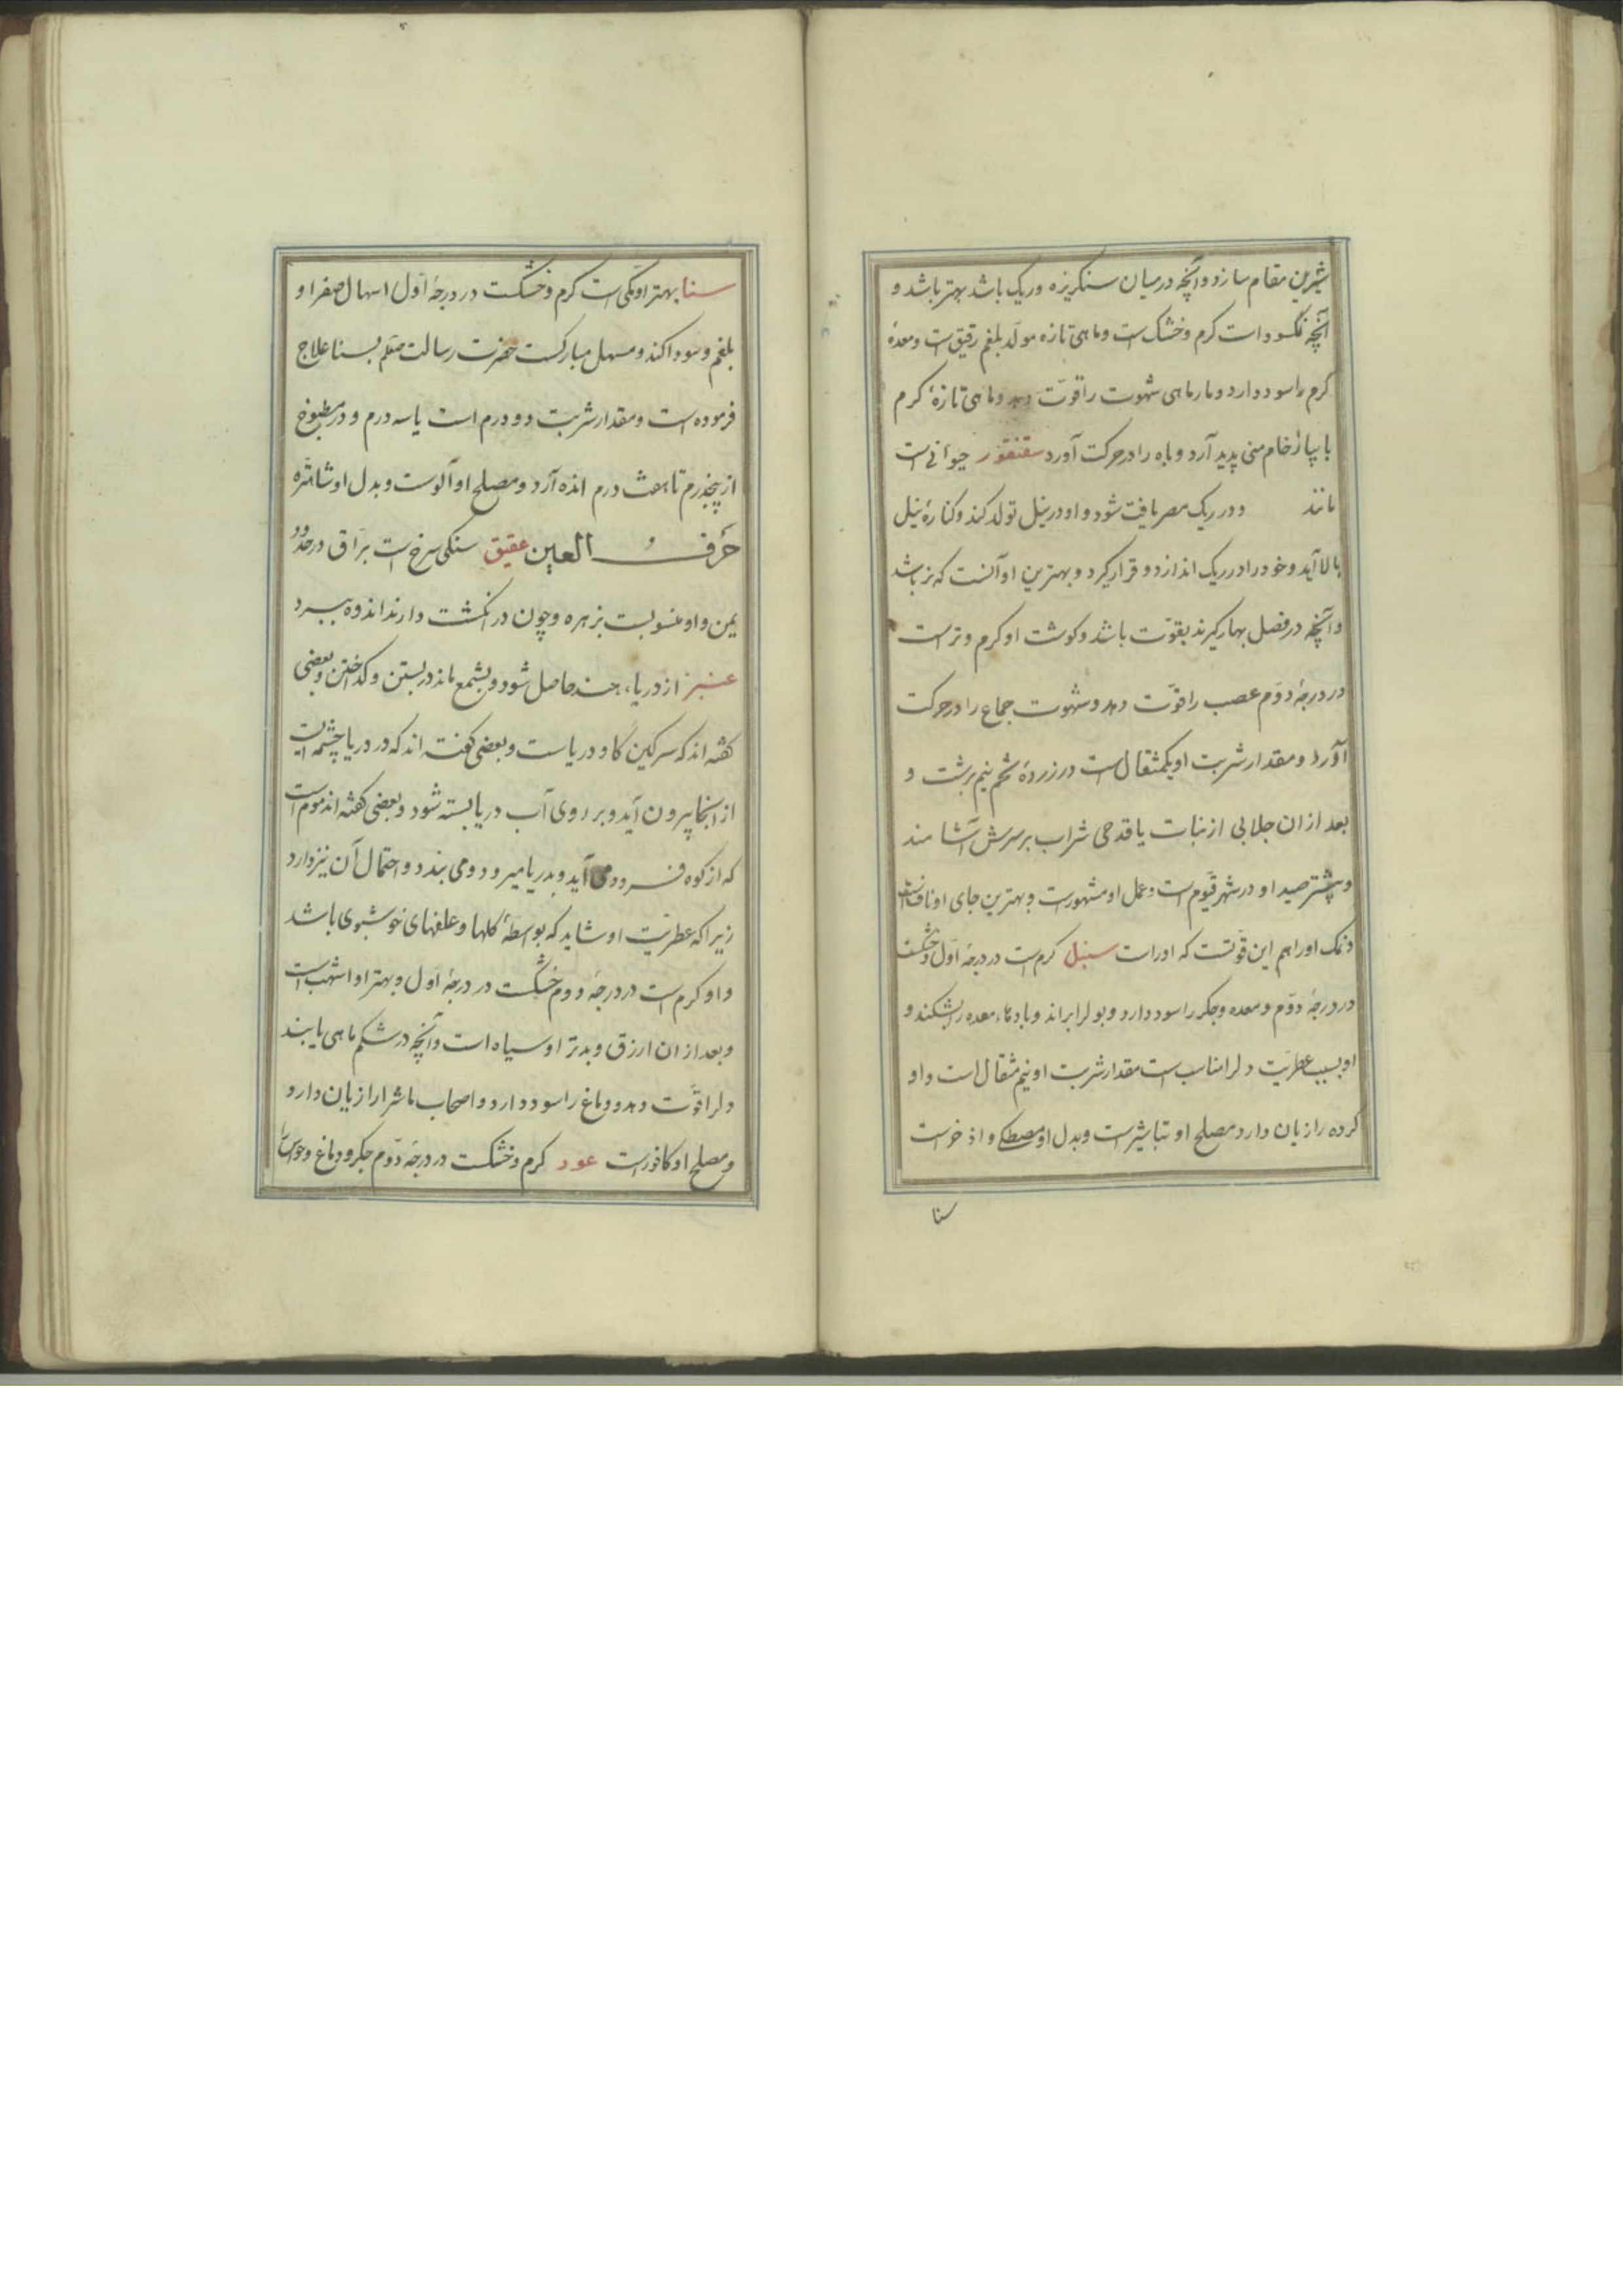 شیرین مقام سازد و آنچه در میان سنکریزه و ریک باشد بهتر باشد و
آنچه نمکسود است کرم و خشک است و ماهی تازه مولد بلغم رقیق است و معدهٔ
کرم را سود دارد و مارماهی شهوت را قوّت دهد و ماهی تازهٔ کرم
با پیاز خام منی پدید آرد و باه را در حرکت آورد سقنقور حیوانی است
مانند و در ریک مصر یافت شود و او در نیل تولد کند و کنارهٔ نیل
بالا آید و خود را در ریک اندازد و قرار کیرد و بهترین او آنست که نر باشد
و آنچه در فصل بهار کیرند بقوّت باشد و کوشت او کرم و تر است
در درجهٔ دوّم عصب را قوّت دهد و شهوت جماع را در حرکت
آورد و مقدار شربت او یکمثقال است در زردهٔ تخم نیم برشت و
بعد از ان جلابی از نبات یا قدحی شراب بر سرش آشامند
و بیشتر صید او در شهر فیّوم است و عمل او مشهورست و بهترین جای او نافست
و نمک او را هم این قوّتست که او راست سنبل کرم است در درجهٔ اوّل و خشکست
در درجهٔ دوّم و معده و جکر را سود دارد و بول را براند و بادهاء معده را بشکند و
او بسبب عطریّت دل را مناسب است مقدار شربت او نیم مثقال است و او
کرده را زیان دارد مصلح او تباشیر است و بدل او مصطکی و اذخر است
سنا
سنا بهتر او مکّی است کرم و خشکست در درجهٔ اوّل اسهال صفرا و
بلغم و سودا کند و مسهل مبارکست حضرت رسالت صلعم بسنا علاج
فرموده است و مقدار شربت دو درم است یا سه درم و در مطبوخ
از پنجدرم تا هفت درم انده آرد و مصلح او آلوست و بدل او شاهتره
حرف العین عقیق سنکی سرخ است برّاق در حدود
یمن و او منسوبست بزهره و چون در انکشت دارند اندوه ببرد
عنبر از دریاء هند حاصل شود و بشمع ماند در بستن و کداختن و بعضی
کفته اند که سرکین کاو دریاست و بعضی کفته اند که در دریا چشمه ایست
از انجا بیرون آید و بر روی آب دریا بسته شود و بعضی کفته اند موم است
که از کوه فرود می آید و بدریا میرود و می بندد و احتمال آن نیز دارد
زیرا که عطریّت او شاید که بواسطهٔ کلها و علفهای خوشبوی باشد
و او کرم است در درجهٔ دوم خشکست در درجهٔ اوّل و بهتر او اشهب است
و بعد از ان ازرق و بدتر او سیاه است و آنچه در شکم ماهی یابند
دل را قوّت دهد و دماغ را سود دارد و اصحاب ماشرا را زیان دارد
و مصلح او کافورست عود کرم و خشکست در درجهٔ دوّم جکر و دماغ و حواس را